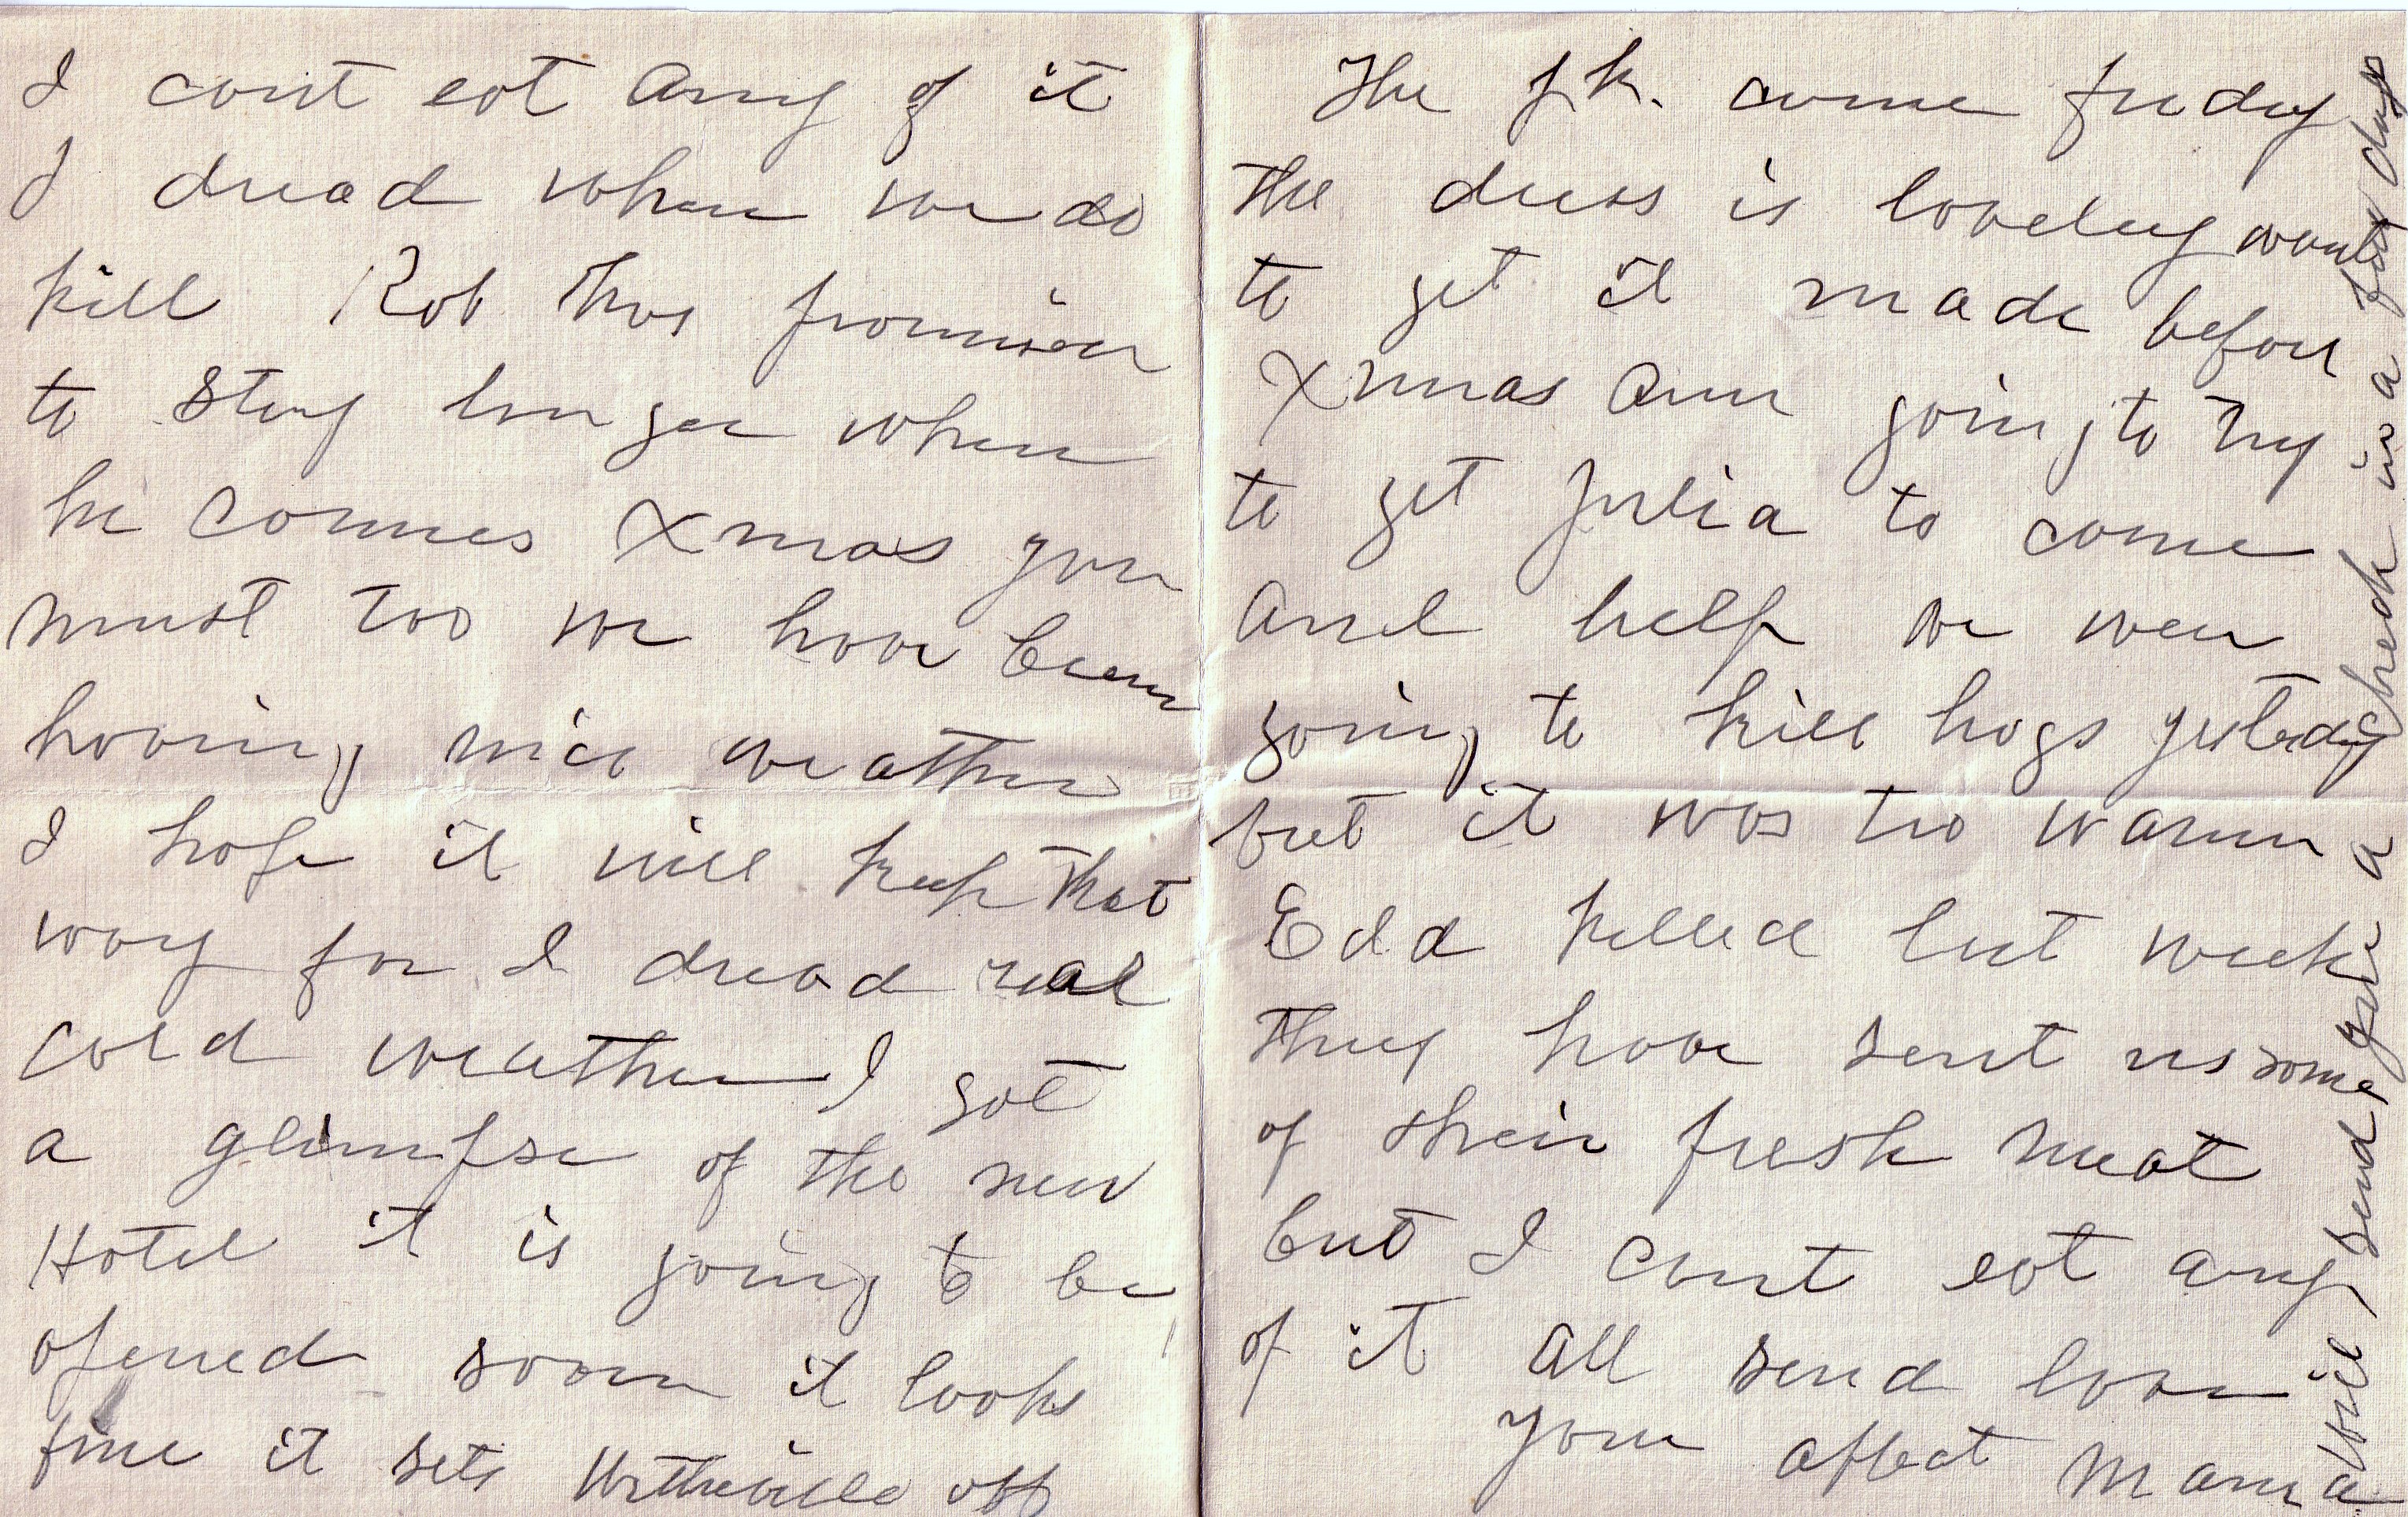 I cant eat any of it
I dread when we do
kill Rob has promised
to stay longer when
he comes Xmas you
must too we have been
having nice weather
I hope it will keep that
way for I dread real
cold weather I got
a glimpse of the new
Hotel it is going to be
opened soon it looks
fine it sets Wytheville off
The pk. came friday
the dress is lovely want
to get it made before
Xmas am going to try
to get Julia to come
and help we were
going to kill hogs yesterday
but it was too warm
Edd killed last week
they have sent us some
of their fresh meat
but I cant eat any
of it all send love
Your affect Mama
Will send you a check in a few days